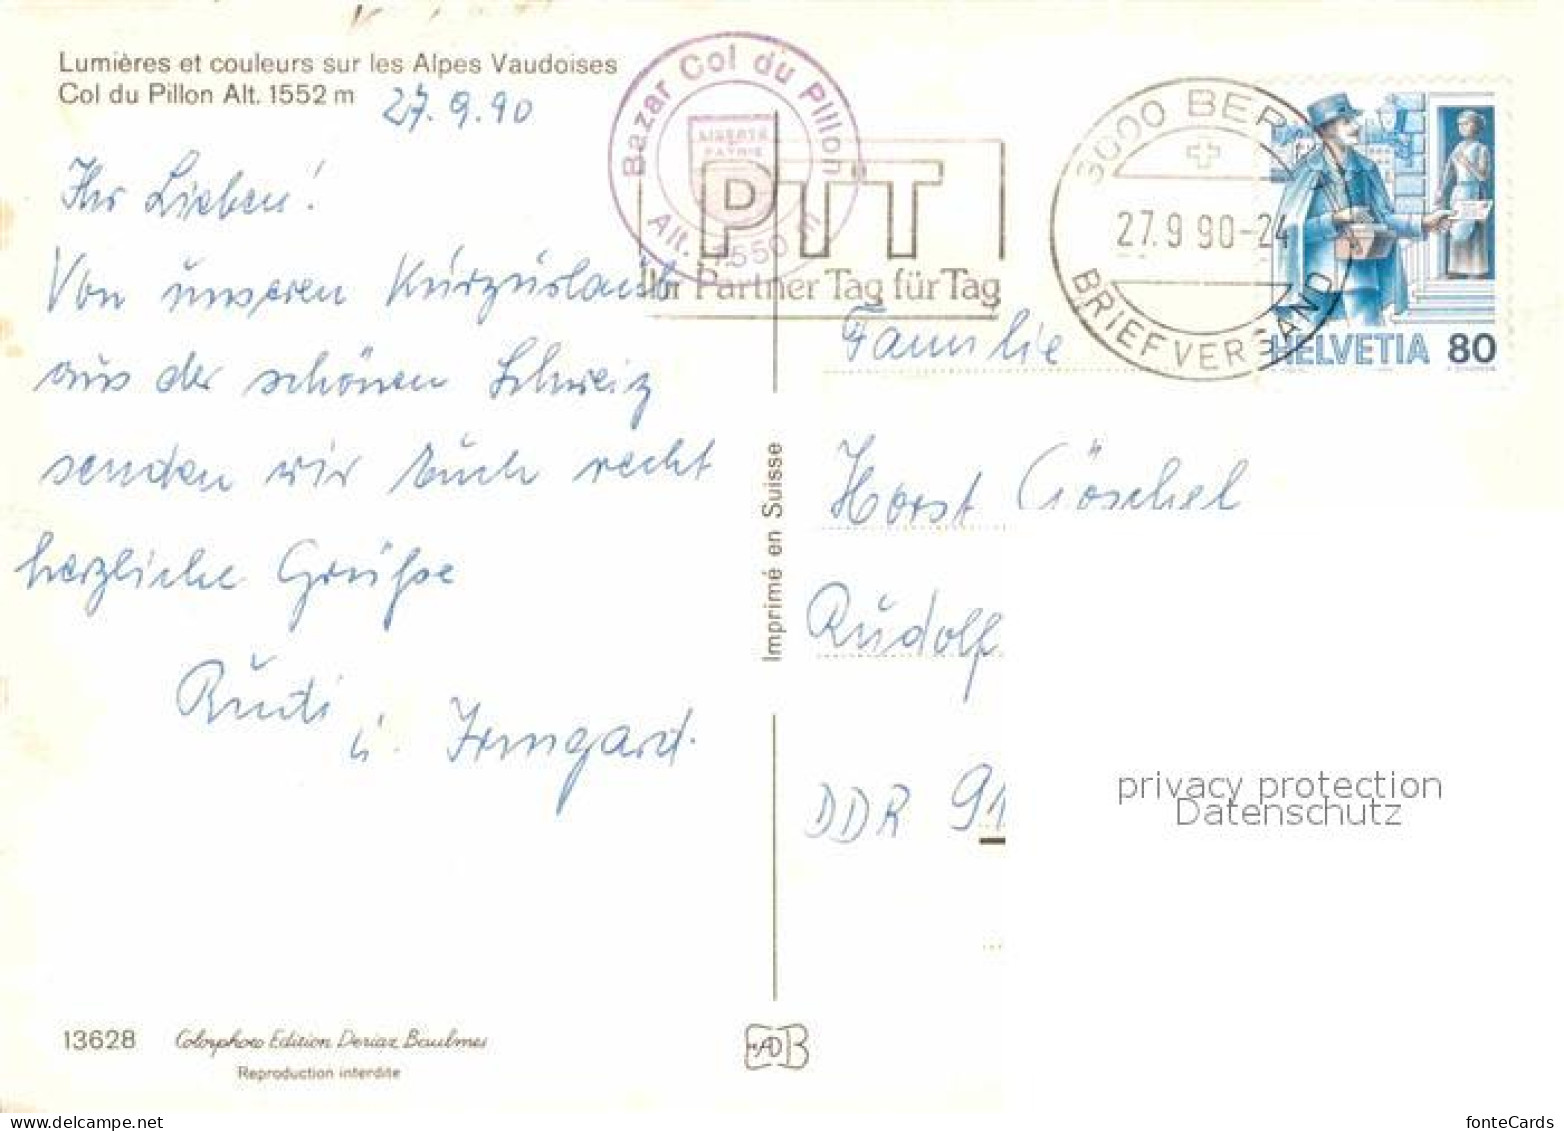 Lumières et couleurs sur les Alpes Vaudoises
Col du Pillon Alt. 1552 m
27.9.90
Ihr Lieben!
Von unseren Kurzurlaub
aus der schönen Schweiz
senden wir Euch recht
herzliche Grüße
Rudi
u. Irmgard.
13628
Colorphoto Edition Deriaz Baulmes
Reproduction interdite
Imprimé en Suisse
Bazar Col du Pillon
LIBERTÉ
PATRIE
Alt. 1550 m
PTT
Ihr Partner Tag für Tag
3000 BERN
27.9.90-24
BRIEFVERSAND
HELVETIA 80
Familie
Horst Göschel
Rudolf
DDR 91
privacy protection
Datenschutz
www.delcampe.net
fonteCards